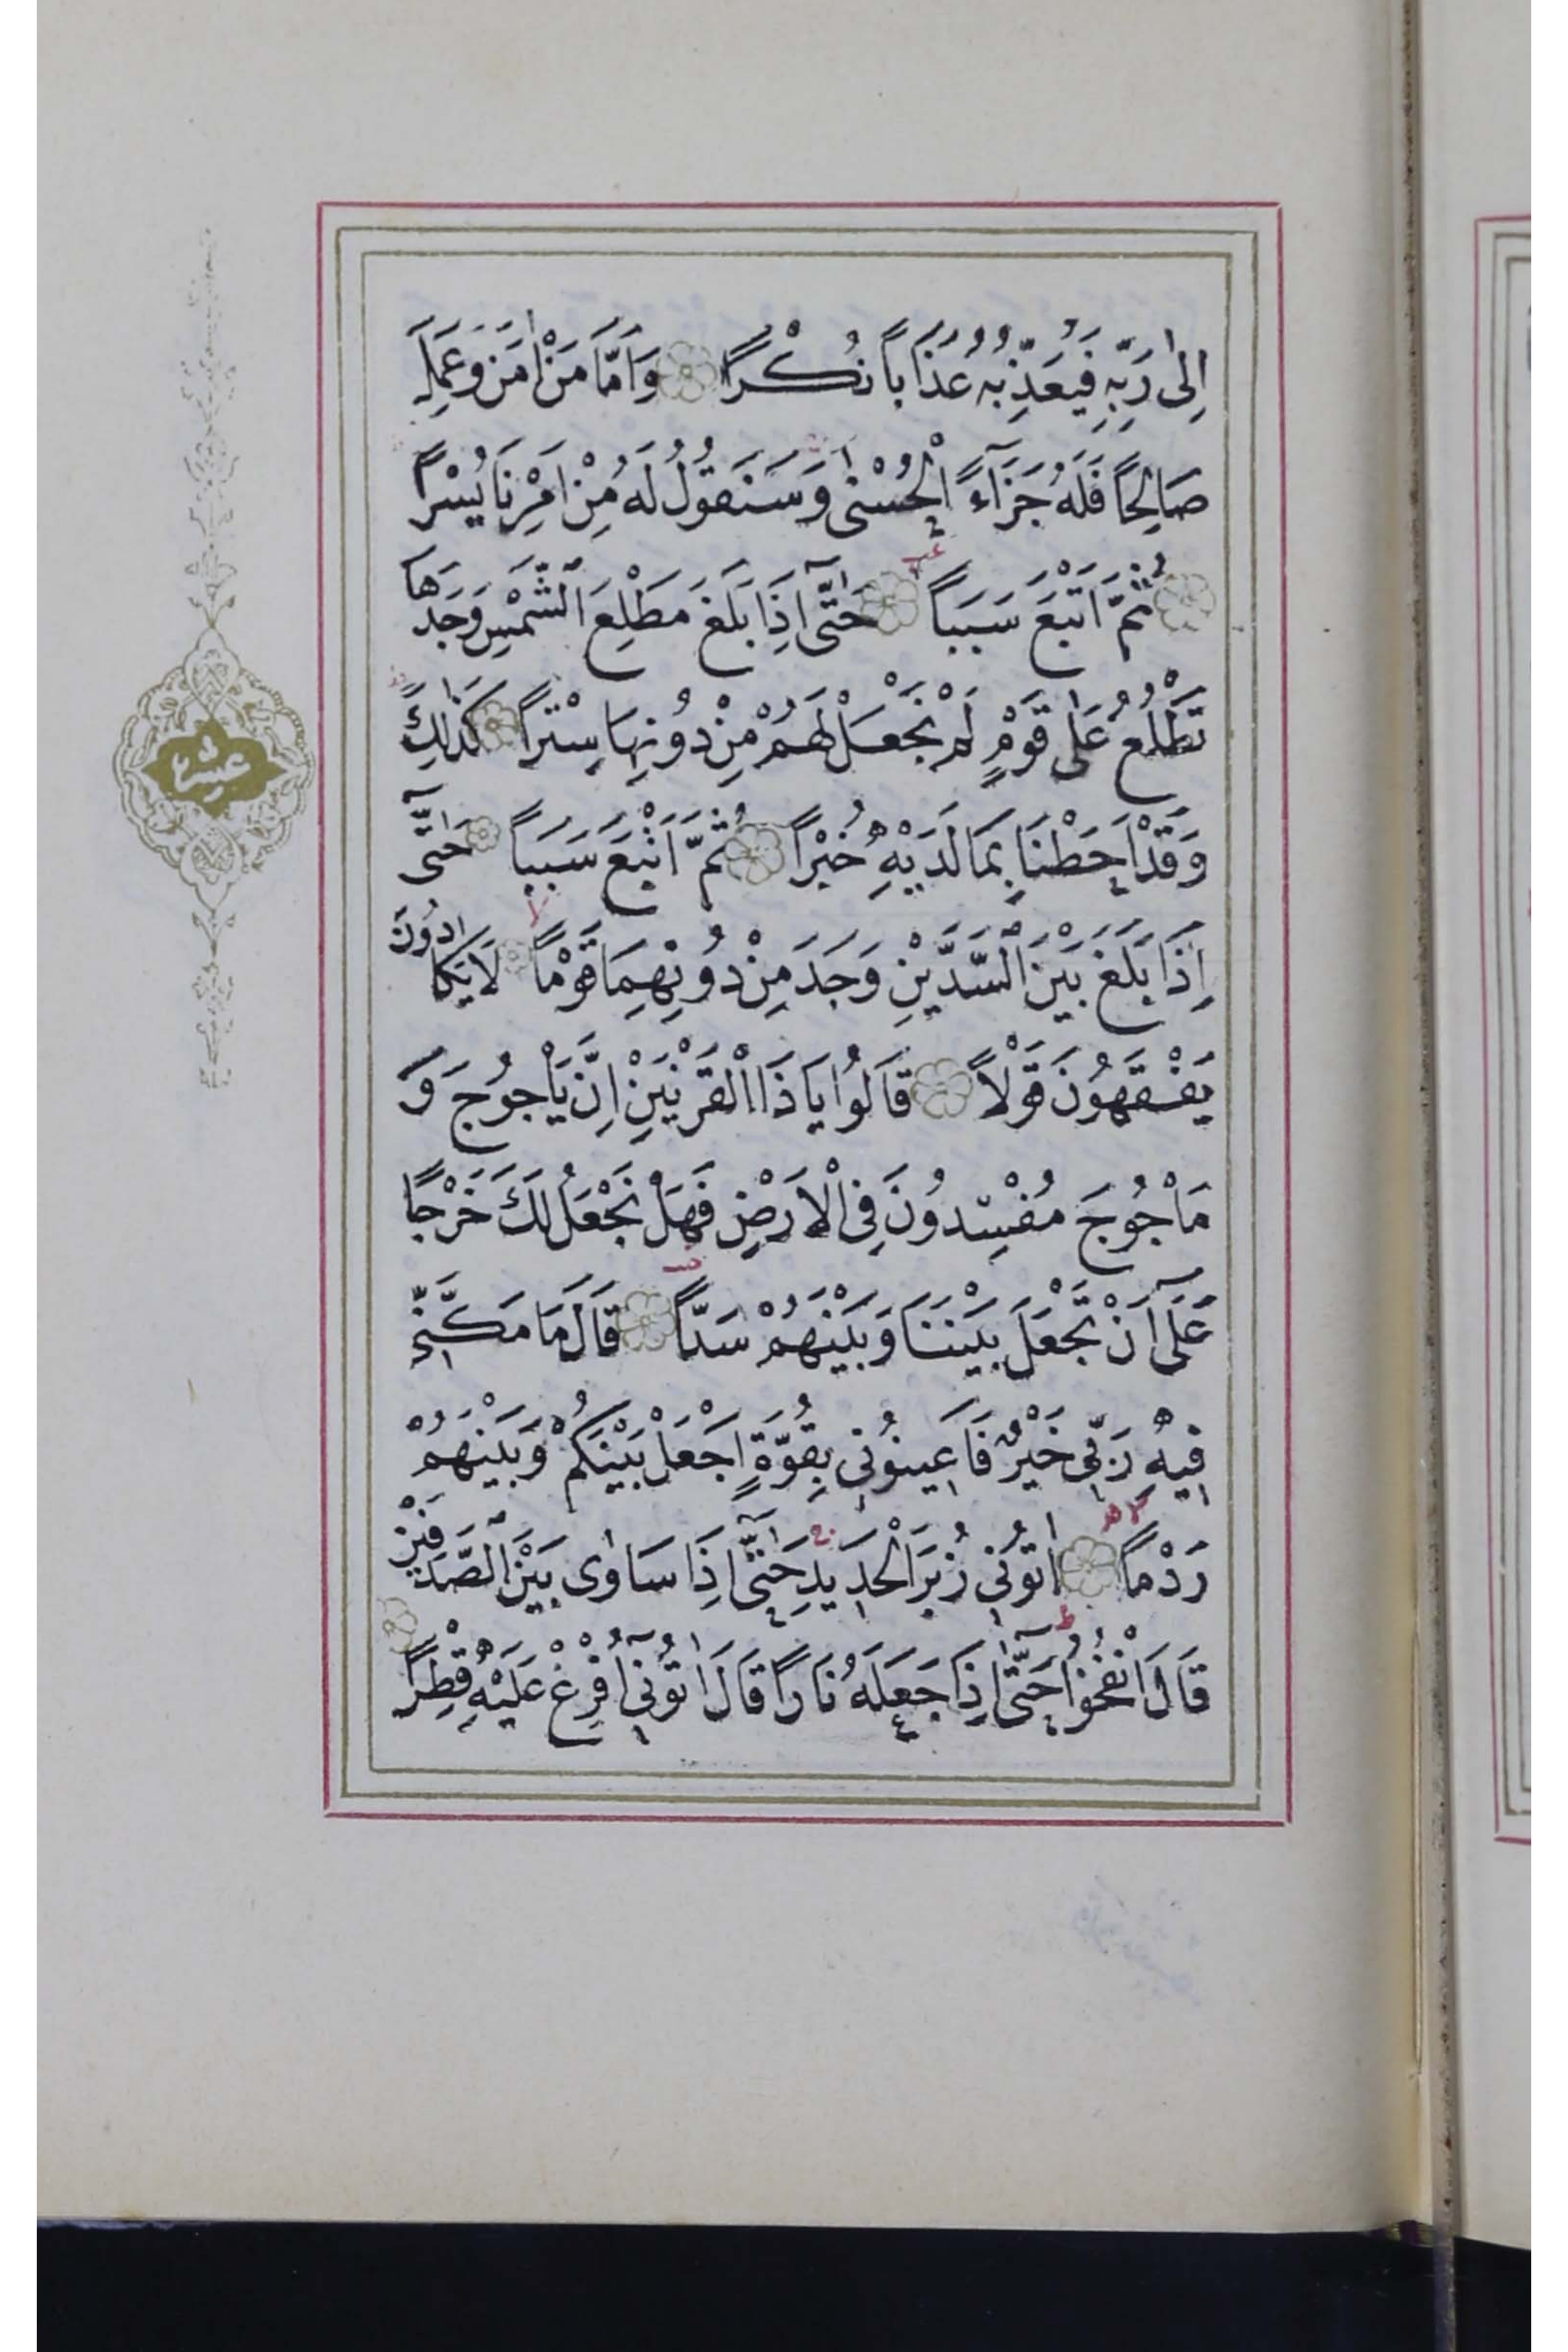 اِلٰى رَبِّهٖ فَيُعَذِّبُهُ عَذَاباً نُكْراً وَاَمَّا مَنْ اٰمَنَ وَعَمِلَ
صَالِحاً فَلَهُ جَزَآءً الْحُسْنٰى وَسَنَقُولُ لَهُ مِنْ اَمْرِنَا يُسْراً
ثُمَّ اَتْبَعَ سَبَباً حَتّٰٓى اِذَا بَلَغَ مَطْلِعَ الشَّمْسِ وَجَدَهَا
تَطْلُعُ عَلٰى قَوْمٍ لَمْ نَجْعَلْ لَهُمْ مِنْ دُونِهَا سِتْراً كَذٰلِكَ
وَقَدْ اَحَطْنَا بِمَا لَدَيْهِ خُبْراً ثُمَّ اَتْبَعَ سَبَباً حَتّٰٓى
اِذَا بَلَغَ بَيْنَ السَّدَّيْنِ وَجَدَ مِنْ دُونِهِمَا قَوْماً لَا يَكَادُونَ
يَفْقَهُونَ قَوْلاً قَالُوا يَا ذَا الْقَرْنَيْنِ اِنَّ يَاْجُوجَ وَ
مَاْجُوجَ مُفْسِدُونَ فِى الْاَرْضِ فَهَلْ نَجْعَلُ لَكَ خَرْجًا
عَلٰٓى اَنْ تَجْعَلَ بَيْنَنَا وَبَيْنَهُمْ سَدّاً قَالَ مَا مَكَّنّٖى
فٖيهِ رَبّٖى خَيْرٌ فَاَعٖينُونٖى بِقُوَّةٍ اَجْعَلْ بَيْنَكُمْ وَبَيْنَهُمْ
رَدْماً اٰتُونٖى زُبَرَ الْحَدٖيدِ حَتّٰٓى اِذَا سَاوٰى بَيْنَ الصَّدَفَيْنِ
قَالَ انْفُخُوا حَتّٰٓى اِذَا جَعَلَهُ نَاراً قَالَ اٰتُونٖٓى اُفْرِغْ عَلَيْهِ قِطْراً
عشر